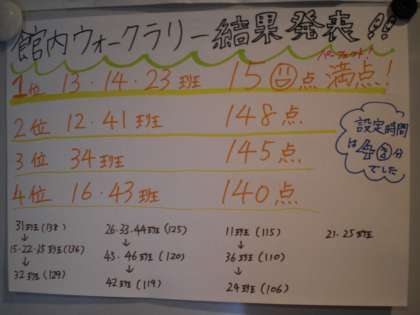 館内ウォークラリー結果発表!!
パーフェクト!
1位 13・14・23班 15☺点 満点!
2位 12・41班 148点
3位 34班 145点
4位 16・43班 140点
設定時間
は4分
でした
31班(138)
↓
15・22・35班(136)
↓
32班(129)
26・33・44班(125)
↓
45・46班(120)
↓
42班(119)
11班(115)
↓
36班(110)
↓
24班(106)
21・25班